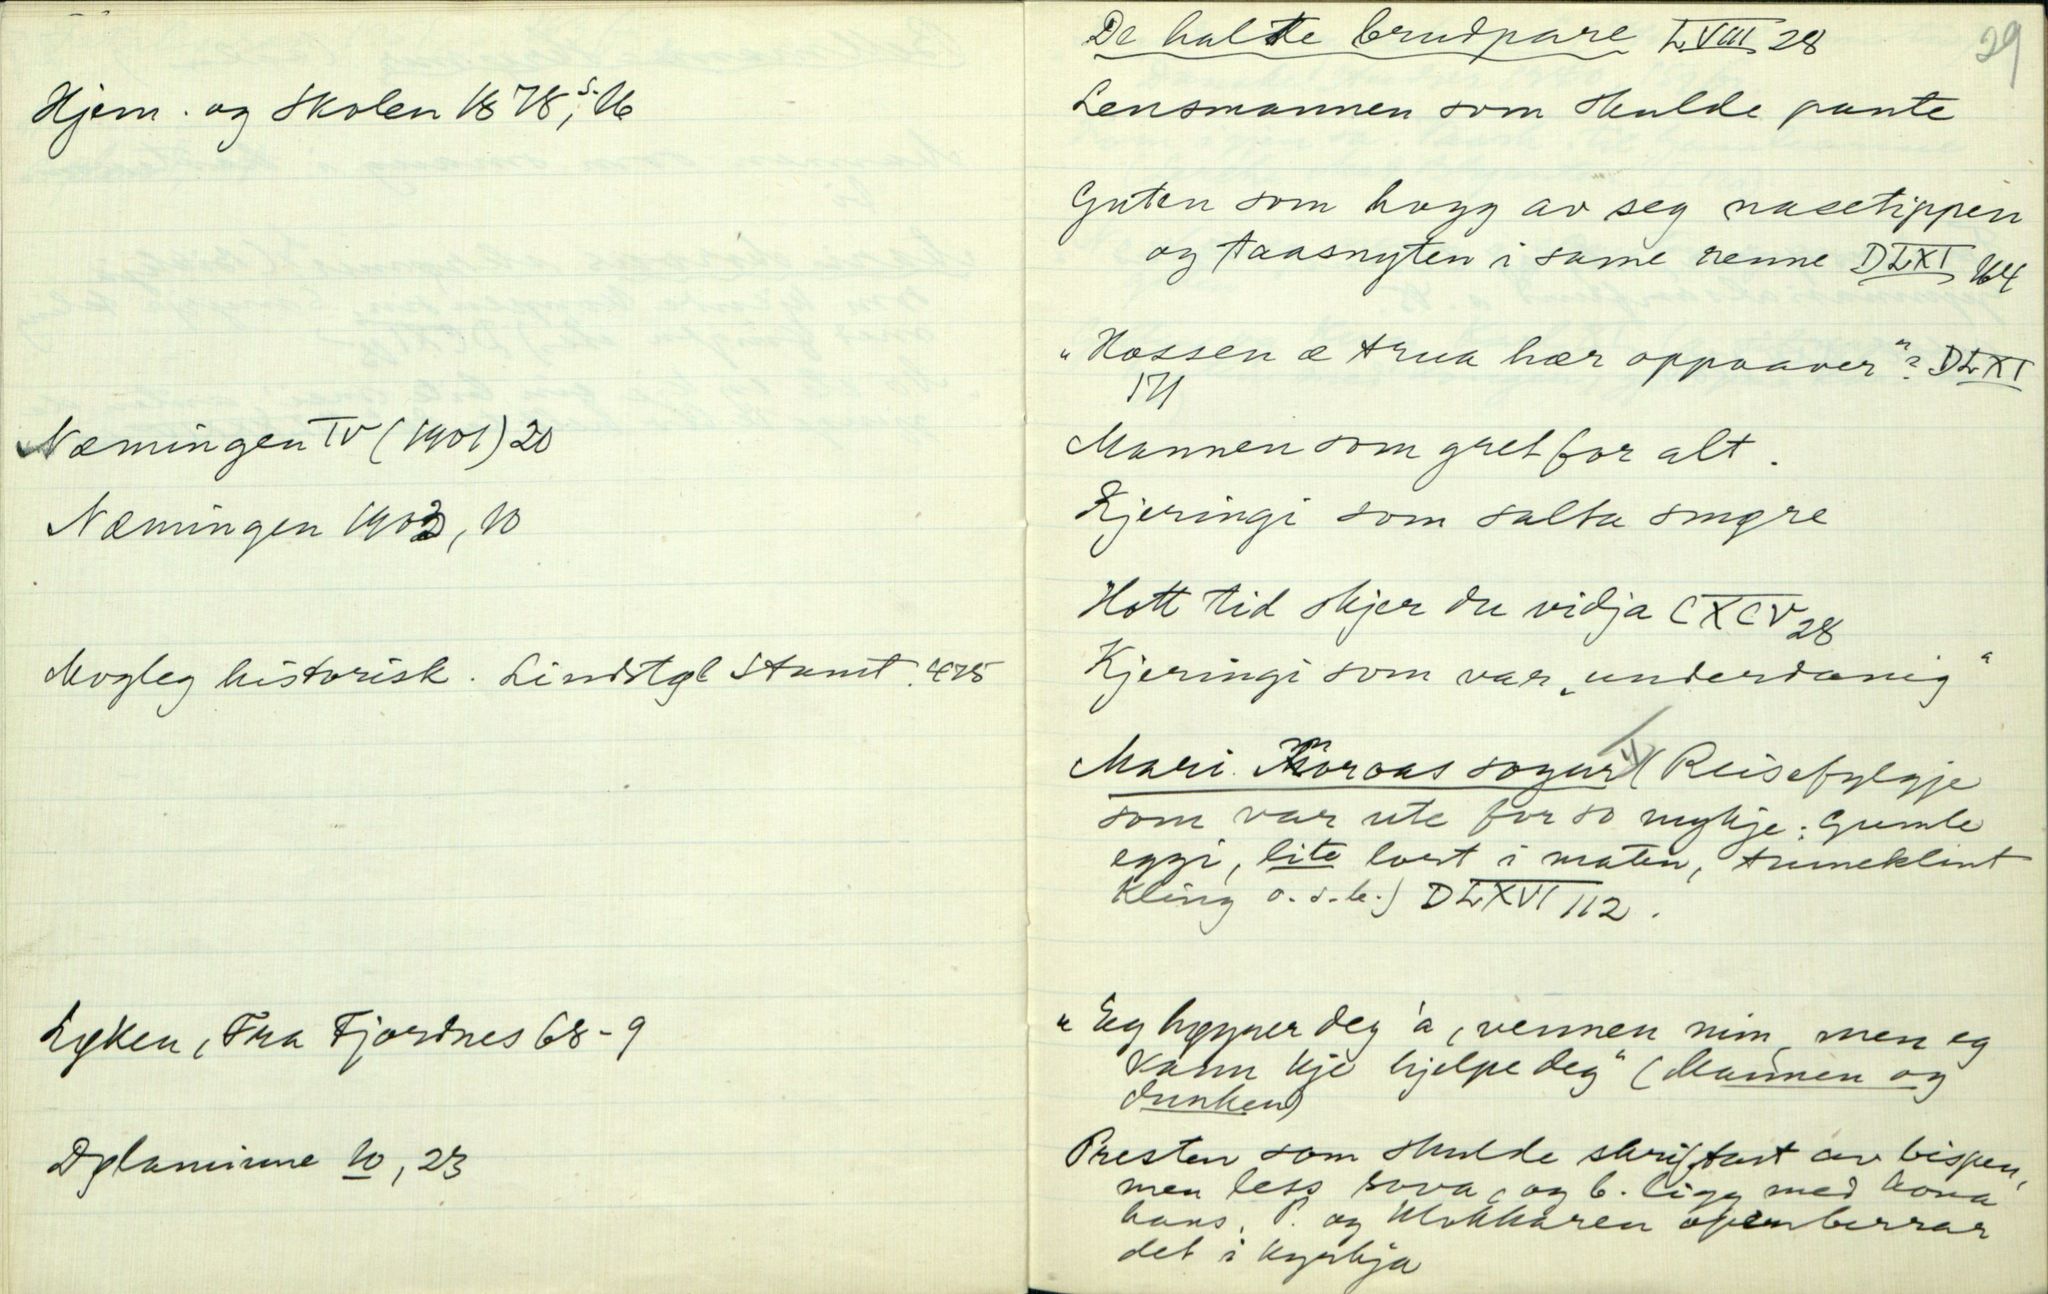 Hjem. og Skolen 1878, s. 16
Næmingen IV (1901) 20
Næmingen 1903, 10
Mogleg historisk. Lindstøl Stamt. 475
Lyken, Fra Fjordnes 68-9
Dølaminne 10, 23
29
De halte brudpare LVIII 28
Lensmannen som skulde pante
Guten som hogg av seg nasetippen
og taasnyten i same renne DLXI 164
"Hossen æ trua hær oppvaaver"? DLXI
171
Mannen som gret for alt.
Kjeringi som salta smøre
Hott tid skjer du vidja CXCV 28
Kjeringi som var "underdanig"
Mari Moroas sogur (Reisefylgje
som var ute for so mykje: Gumle
eggi, lite loert i maten, trineklint
kling o.s.b.) DLXVI 112.
"Eg hypper deg å, vennen min, men eg
kann kje hjelpe deg" (Mannen og
dunken)
Presten som skulde skriftast av bispen,
men less sova, og b. ligg med kona
hans. P. og klokkaren openberrar
det i kyrkja